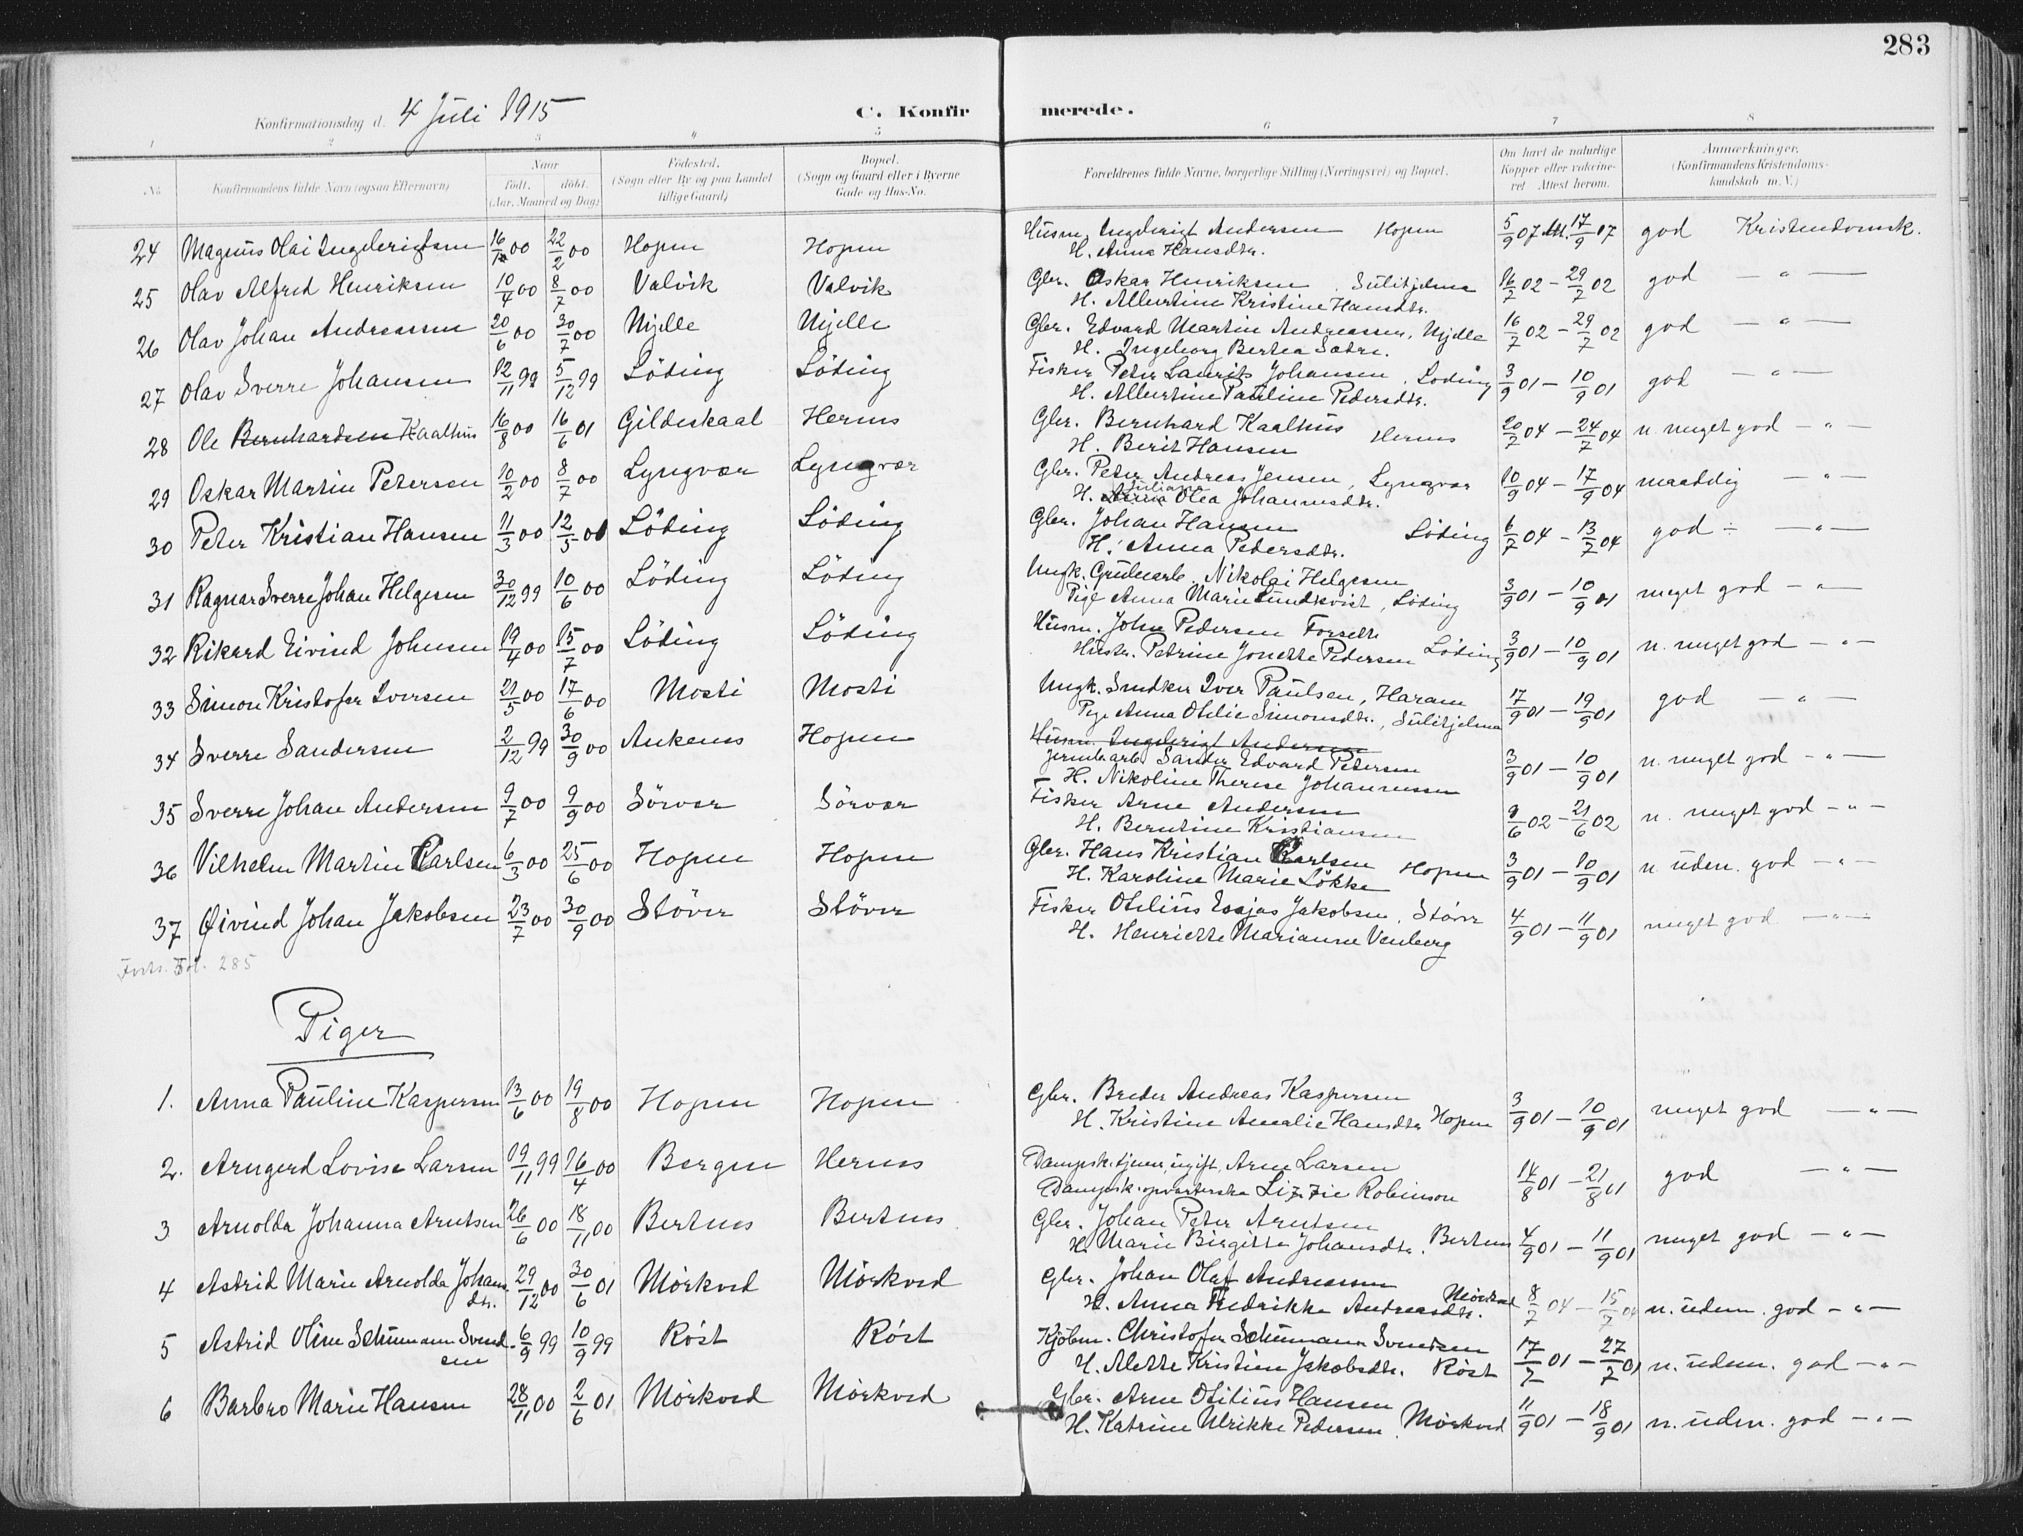 283
Konfirmationsdag d. 4 Juli 1915 C. Konfirmerede.
1 2 3 4 5 6 7 8
No. Konfirmandens fulde Navn (ogsaa Efternavn) Naar født. døbt. (Aar, Maaned og Dag) Fødested. (Sogn eller By og paa Landet tillige Gaard) Bopæl. (Sogn og Gaard eller i Byerne Gade og Hus-No. Forældrenes fulde Navne, borgerlige Stilling (Næringsvei) og Bopæl. Om havt de naturlige Kopper eller vakcineret. Attest herom. Anmærkninger, (Konfirmandens Kristendomskundskab m. V.)
24 Magnus Olai Ingebrigtsen 16/1 00 22/2 00 Hopen Hopen Husm. Ingebrigt Andersen Hopen 5/9 07 Att. 17/9 07 god Kristendomsk.
H. Anna Hansdtr.
25 Olav Alfred Henriksen 10/4 00 8/7 00 Valvik Valvik Gbr. Oskar Henriksen, Sulitjelma 16/7 02 – 29/7 02 god — " —
H. Albertine Kristine Hansdtr.
26 Olav Johan Andreassen 20/6 00 30/7 00 Mjelle Mjelle Gbr. Edvard Martin Andreassen, Mjelle 16/7 02 – 29/7 02 god — " —
H. Ingeborg Bertea Sætre.
27 Olav Sverre Johansen 12/11 99 5/12 99 Löding Löding Fisker Peter Laurits Johansen, Loding 3/9 01 – 10/9 01 god — " —
H. Albertine Pauline Pedersdtr.
28 Ole Bernhardsen Kaalhus 16/8 00 16/6 01 Gildeskaal Hernes Gbr. Bernhard Kaalhus Hernes 20/7 04 – 24/7 04 n. meget god – " –
H. Berit Hansen
29 Oskar Martin Petersen 10/2 00 8/7 00 Lyngvær Lyngvær Gbr. Peter Andreas Jensen, Lyngvær 10/9 04 – 17/9 04 maadelig — " —
H. Anna Juliana Olea Johannesdtr.
30 Peter Kristian Hansen 11/3 00 12/5 01 Löding Löding Gbr. Johan Hansen Löding 6/7 04 – 13/7 04 god ÷ — " —
H. Anna Pedersdtr.
31 Ragnar Sverre Johan Helgesen 30/12 99 10/6 00 Löding Löding Ungk. Grubearb. Nikolai Helgesen 3/9 01 – 10/9 01 meget god – " –
Pige Anna Marie Lundkvist, Löding
32 Rikard Eivind Johnsen 19/4 00 15/7 00 Löding Löding Husm. John Pedersen Forseth 3/9 01 – 10/9 01 n. meget god – " –
Hustr. Petrine Jonette Pedersen Löding
33 Simon Kristofer Iversen 21/5 00 17/6 00 Mosti Mosti Ungk. Snedker Iver Paulsen, Haram 17/9 01 – 19/9 01 god — " —
Pige Anna Otelie Simonsdtr., Sulitjelma
34 Sverre Sandersen 2/12 99 30/9 00 Ankenes Hopen Husm. Ingebrigt Andersen
Jernbarb. Sander Edvard Petersen 3/9 01 – 10/9 01 n. meget god – " –
H. Nikoline Therese Johannessen
35 Sverre Johan Andersen 9/7 00 9/9 00 Sörvær Sörvær Fisker Arne Andersen 9/6 02 – 21/6 02 n. meget god – " –
H. Berntine Kristiansen
36 Vilhelm Martin Carlsen 6/3 00 25/6 00 Hopen Hopen Gbr. Hans Kristian Karlsen Hopen 3/9 01 – 10/9 01 n uden. god – " –
H. Karoline Marie Løkke
37 Øivind Johan Jakobsen 23/7 00 30/9 00 Stöver Stöver Fisker Otelius Esajas Jakobsen, Störe 4/9 01 – 11/9 01 meget god — " —
H. Henriette Marianne Venberg
Forts. Fol. 285
Piger
1. Anna Pauline Kaspersen 13/6 00 19/8 00 Hopen Hopen Gbr. Breder Andreas Kaspersen 3/9 01 – 10/9 01 meget god — " —
H. Kristine Amalie Hansdtr Hopen
2. Arngerd Lovise Larsen 19/11 99 16/4 00 Bergen Hernes Dampsk. tjener, ugift, Arne Larsen 14/8 01 – 21/8 01 god — " —
Dampsk. opvarterske Lizzie Robinson
3 Arnolda Johanna Arntsen 26/6 00 18/11 00 Bertnes Bertnes Gbr. Johan Peter Arntsen 4/9 01 – 11/9 01 meget god – " –
H. Marie Birgitte Johansdtr. Bertnes
4 Astrid Marie Arnolda Johansdtr. 29/12 00 30/6 01 Mörkved Mörkved Gbr. Johan Olaf Andreassen 8/7 04 – 15/7 04 n. udem. god – " –
H. Anna Fredrikke Andreasdtr. Mörkved
5 Astrid Oline Schumann Svendsen 6/9 99 10/9 99 Röst Röst Kjöbm. Christofer Schumann Svendsen 17/7 01 – 27/7 01 n. udem. god – " –
H. Alette Kristine Jakobsdtr. Röst
6 Barbro Marie Hansen 28/11 00 2/6 01 Mörkved Mörkved Gbr. Arne Otilius Hansen 11/9 01 – 18/9 01 n. udem. god – " –
H. Katrine Ulrikke Pedersen, Mörkved